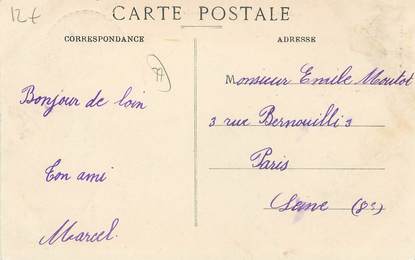 12€
CARTE POSTALE
CORRESPONDANCE
ADRESSE
77
Bonjour de loin
Ton ami
Marcel.
Monsieur Emile Moutot
3 rue Bernouilli 3
Paris
Seine (8e)